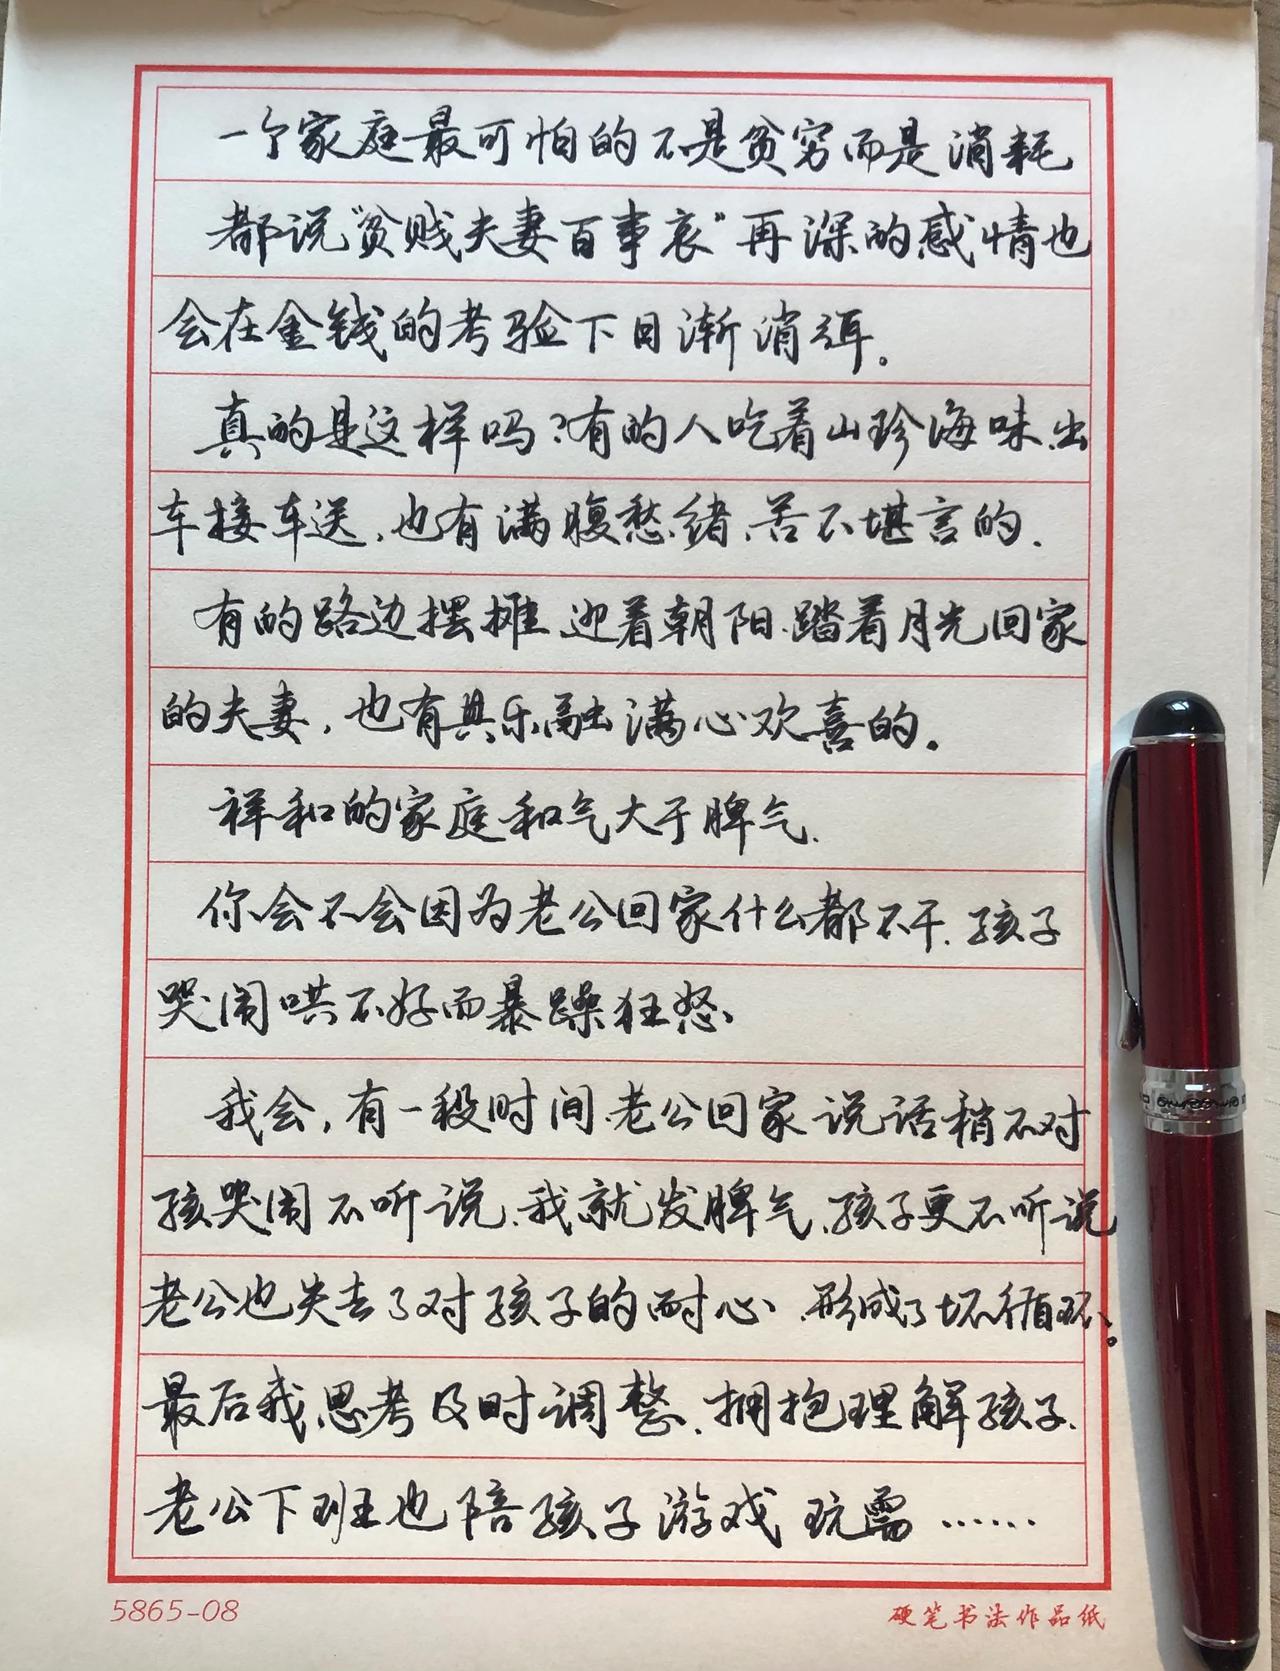 一个家庭最可怕的不是贫穷而是消耗
都说“贫贱夫妻百事哀”再深的感情也
会在金钱的考验下日渐消弭。
真的是这样吗？有的人吃着山珍海味、出
车接车送，也有满腹愁绪、苦不堪言的.
有的路边摆摊、迎着朝阳、踏着月光回家
的夫妻，也有其乐融融满心欢喜的。
祥和的家庭和气大于脾气.
你会不会因为老公回家什么都不干、孩子
哭闹哄不好而暴躁狂怒、
我会，有一段时间、老公回家说话稍不对
孩哭闹不听说、我就发脾气、孩子更不听说
老公也失去了对孩子的耐心、形成了坏循环。
最后我思考及时调整、拥抱理解孩子.
老公下班也陪孩子游戏玩耍……
5865-08
硬笔书法作品纸